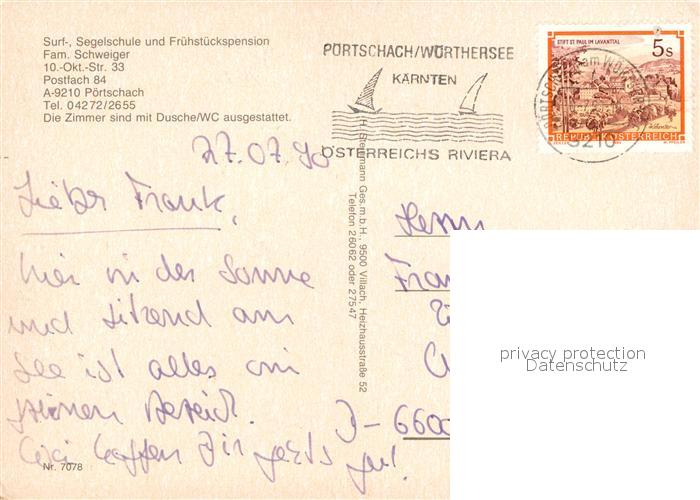 Surf-, Segelschule und Frühstückspension
Fam. Schweiger
10.-Okt.-Str. 33
Postfach 84
A-9210 Pörtschach
Tel. 04272/2655
Die Zimmer sind mit Dusche/WC ausgestattet.
PÖRTSCHACH/WÖRTHERSEE
KÄRNTEN
ÖSTERREICHS RIVIERA
STIFT ST. PAUL IM LAVANTTAL
5s
REPUBLIK ÖSTERREICH
9210
27.07.90
Lieber Frank,
hier in der Sonne
und sitzend am
See ist alles im
Bereich.
Wir hoffen Dir geht's gut!
Nr. 7078
Ges.m.b.H., 9500 Villach, Heizhausstraße 52
Telefon 26062 oder 27547
Herrn
Fran
D-6600
privacy protection
Datenschutz